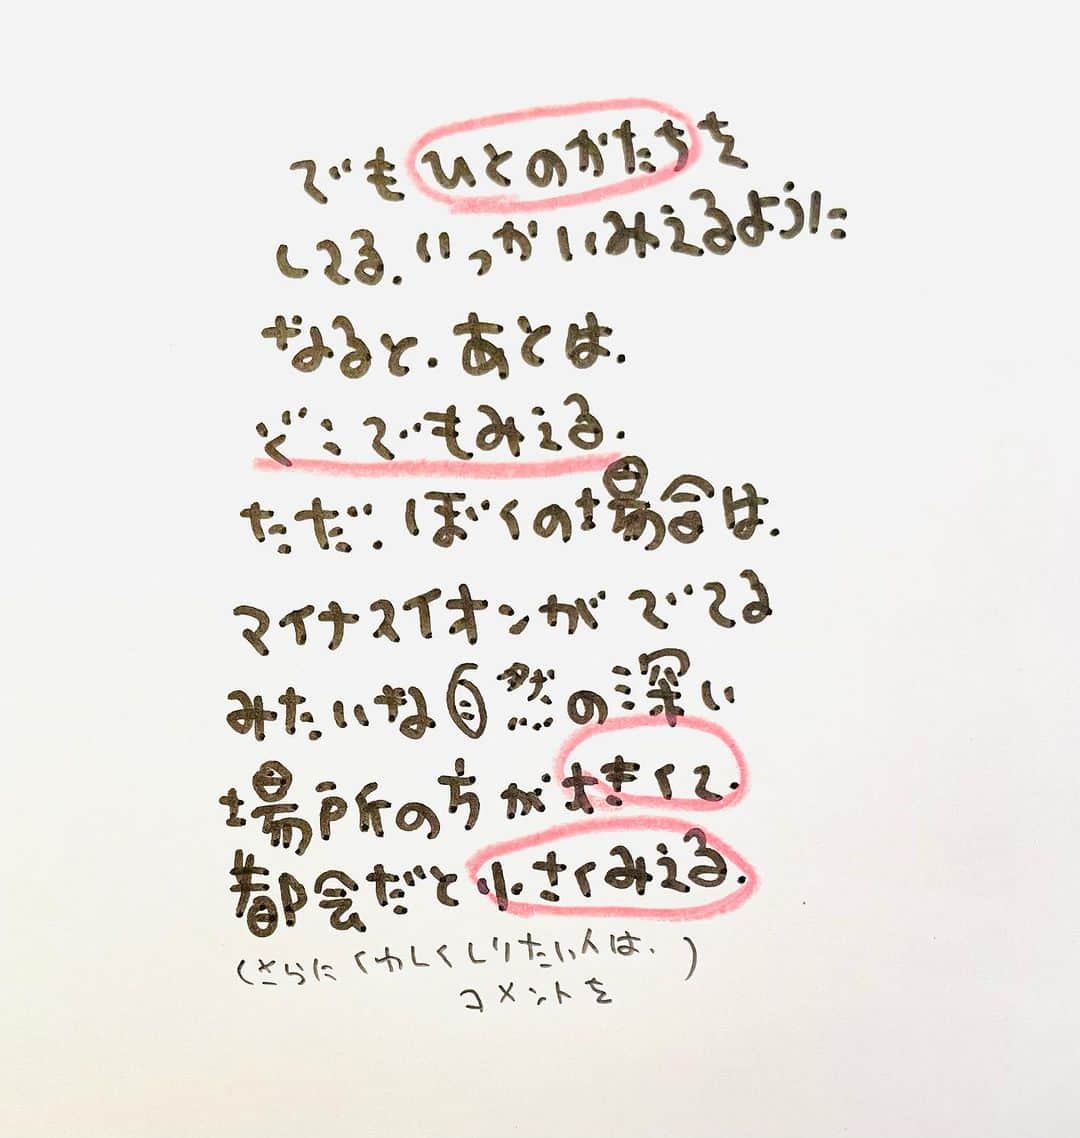 でもひとのかたちを
してる.いっかいみえるように
なると.あとは.
どこでもみえる.
ただ.ぼくの場合は.
マイナスイオンがでてる
みたいな自然の深い
場所の方が大きくて.
都会だと小さくみえる.
(さらにくわしくしりたい人は.)
コメントを